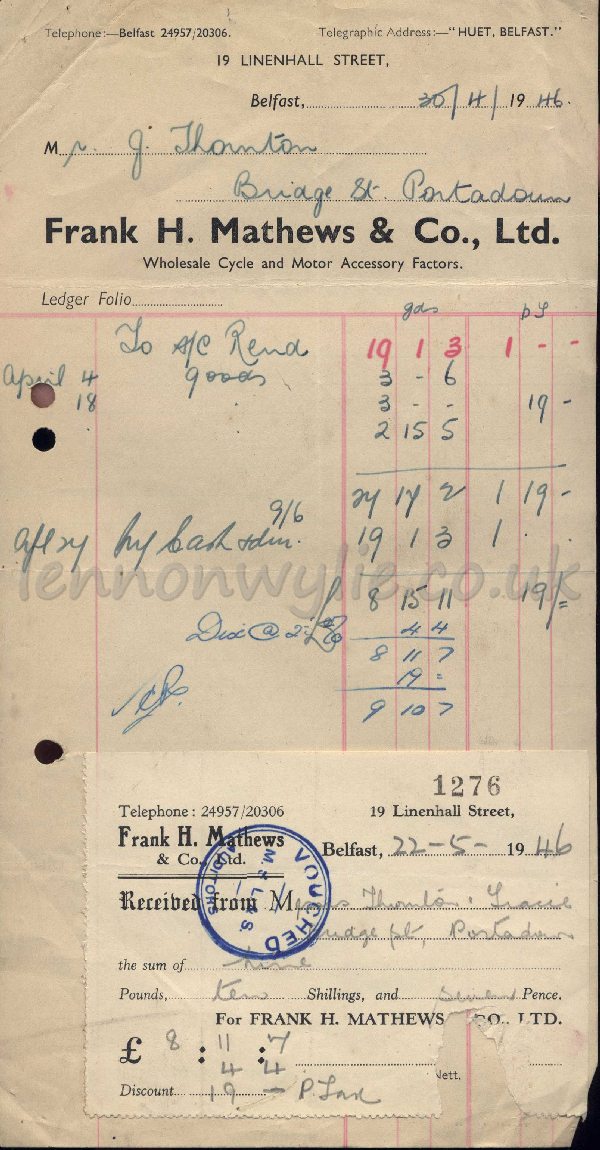 Telephone:—Belfast 24957/20306. Telegraphic Address:—"HUET, BELFAST."
19 LINENHALL STREET,
Belfast, 30/4/1946.
Mr. J. Thornton
Bridge St. Portadown
Frank H. Mathews & Co., Ltd.
Wholesale Cycle and Motor Accessory Factors.
Ledger Folio
gds
To A/C Rend 19 1 3 1 - -
April 4 goods 3 - 6
18 3 - - 19 -
2 15 5
9/6 1 19 -
By Cash 19 1 3 1 . .
lennonwylie.co.uk
8 15 11 19/=
Dis @ 4 4
8 11 7
19 =
9 10 7
1276
Telephone: 24957/20306 19 Linenhall Street,
Frank H. Mathews
& Co., Ltd.
Belfast, 22-5-1946
Received from Thornton
Portadown
the sum of nine
Pounds, ten Shillings, and seven Pence.
For FRANK H. MATHEWS CO., LTD.
£ 8 : 11 : 7
4 4
Nett.
Discount 19 - P. Tax
VOUCHED
AUDITORS